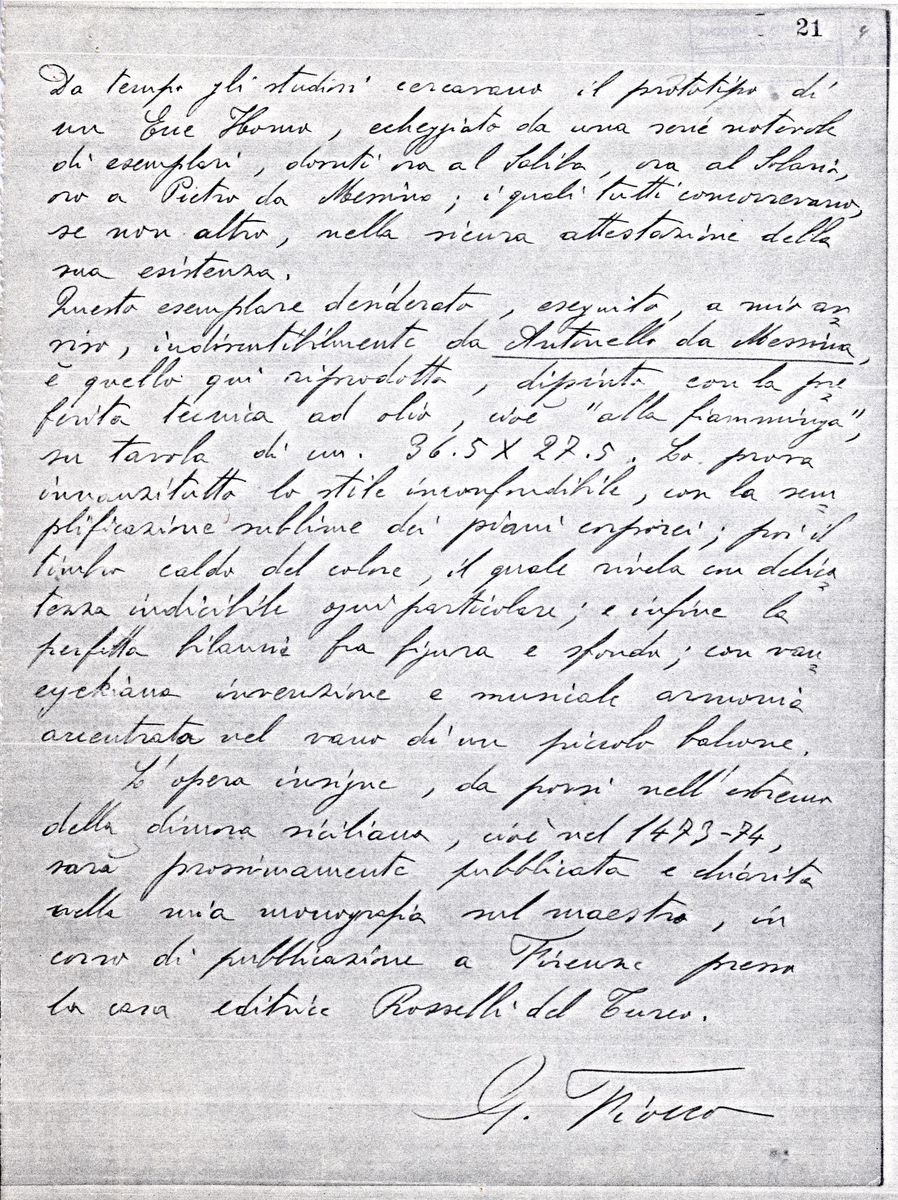 21
Da tempo gli studiosi cercavano il prototipo di
un Ecce Homo, echeggiato da una serie notevole
di esemplari, dovuti ora al Saliba, ora al Solario,
ora a Pietro da Messina; i quali tutti concorrevano,
se non altro, nella sicura attestazione della
sua esistenza.
Questo esemplare desiderato, eseguito, a mio av=
viso, indiscutibilmente da Antonello da Messina,
è quello qui riprodotto, dipinto con la pre=
ferita tecnica ad olio, cioè "alla fiamminga",
su tavola di cm. 36.5 X 27.5. Lo prova
innanzitutto lo stile inconfondibile, con la sem=
plificazione sublime dei piani corporei; poi il
timbro caldo del colore, il quale rivela con delica=
tezza indicibile ogni particolare; e infine la
perfetta bilancia fra figura e sfondo; con van=
eyckiana invenzione e musicale armonia
accentrata nel vano di un piccolo balcone.
L'opera insigne, da porsi nell'estremo
della dimora siciliana, cioè nel 1473-74,
sarà prossimamente pubblicata e chiarita
nella mia monografia sul maestro, in
corso di pubblicazione a Firenze presso
la casa editrice Rosselli del Turco.
G. Fiocco